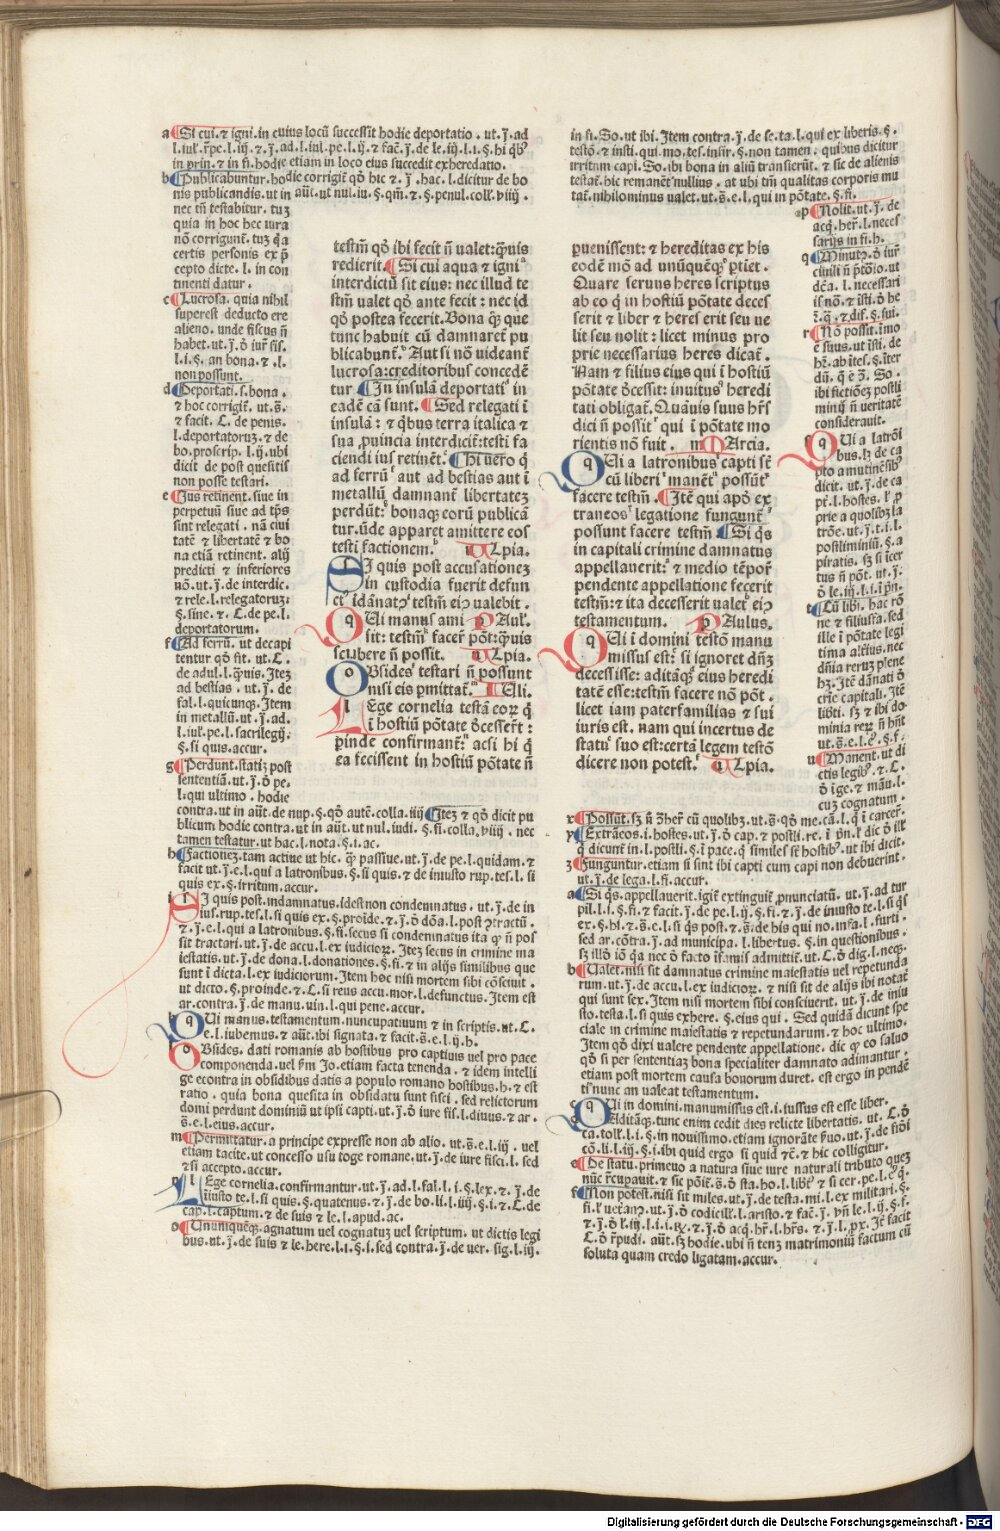 a ¶Si cui. ⁊ igni. in cuius locū successit hodie deportatio. ut. j̄. ad
l. iul. r̄pe. l. iij. ⁊ j̄. ad. l. iul. pe. l. ij. ⁊ fac̄. j̄. de le. iij. l. i. §. hi qb'
in prin. ⁊ in fi. hodie etiam in loco eius succedit exheredatio.
b ¶Publicabuntur. hodie corrigit̄ qō hic ⁊ j̄. hac. l. dicitur de bo
nis publicandis. ut in aūt. ut nul. iu. §. qm̄. ⁊ §. penul. coll. viiij.
nec tn̄ testabitur. tuz
quia in hoc hec iura
nō corrigunt̄. tuz q̄a
certis personis ex p̄
cepto dicte. l. in con
tinenti datur.
c ¶Lucrosa. quia nihil
superest deducto ere
alieno. unde fiscus n̄
habet. ut. j̄. ō iur̄ fis.
l. i. §. an bona. ⁊ .l.
non possunt.
d ¶Deportati. s. bona.
⁊ hoc corrigit̄. ut. s̄.
⁊ facit. C. de penis.
l. deportatoruz. ⁊ de
bo. proscrip. l. ij. ubi
dicit de post quesitis
non posse testari.
e ¶Ius retinent. siue in
perpetuū siue ad tp̄s
sint relegati. nā ciui
tatē ⁊ libertatē ⁊ bo
na etiā retinent. alij
predicti ⁊ inferiores
nō. ut. j̄. de interdic.
⁊ rele. l. relegatoruz.
§. sine. ⁊ C. de pe. l.
deportatorum.
f ¶Ad ferrū. ut decapi
tentur qō fit. ut. C.
de adul. l. q̄uis. Itez
ad bestias. ut. j̄. de
fal. l. quicunq̄. Item
in metallū. ut. j̄. ad.
l. iul. pe. l. sacrilegij.
§. si quis. accur.
g ¶Perdunt. statiz post
sententiā. ut. j̄. ō pe.
l. qui ultimo. hodie
contra. ut in aūt. de nup. §. qō autē. colla. iiij ¶Itez ⁊ qō dicit pu
blicum hodie contra. ut in aūt. ut nul. iudi. §. fi. colla. viiij. nec
tamen testatur. ut hac. l. nota. §. i. ac.
h ¶Factionez. tam actiue ut hic. q̄ passiue. ut. j̄. de pe. l. quidam. ⁊
facit ut. j̄. e. l. qui a latronibus. §. si quis. ⁊ de iniusto rup. tes. l. si
quis ex. §. irritum. accur.
i SI quis post. indamnatus. idest non condemnatus. ut. j̄. de in
ius. rup. tes. l. si quis ex. §. proīde. ⁊ j̄. ō dōa. l. post ↄtractū.
⁊ j̄. e. l. qui a latronibus. §. fi. secus si condemnatus ita q n̄ pos
sit tractari. ut. j̄. de accu. l. ex iudicioꝝ. Itez secus in crimine ma
iestatis. ut. j̄. de dona. l. donationes. §. fi. ⁊ in alijs similibus que
sunt ī dicta. l. ex iudiciorum. Item hoc nisi mortem sibi cōsciuit.
ut dicto. §. proinde. ⁊ C. si reus accu. mor. l. defunctus. Item est
ar. contra. j̄. de manu. uin. l. qui pene. accur.
k QUi manus. testamentum. nuncupatiuum ⁊ in scriptis. ut. C.
e. l. iubemus. ⁊ aūt. ibi signata. ⁊ facit. s̄. e. l. ij. h.
l OBsides. dati romanis ab hostibus pro captiuis uel pro pace
componenda. uel ꝓm Jo. etiam facta tenenda. ⁊ idem intelli
ge econtra in obsidibus datis a populo romano hostibus. h. ⁊ est
ratio. quia bona quesita in obsidatu sunt fisci. sed relictorum
domi perdunt dominiū ut ipsi capti. ut. j̄. ō iure fis. l. diuus. ⁊ ar.
s̄. e. l. eius. accur.
m ¶Permittatur. a principe expresse non ab alio. ut. s̄. e. l. iij. uel
etiam tacite. ut concesso usu toge romane. ut. j̄. de iure fisci. l. sed
⁊ si accepto. accur.
n LEge cornelia. confirmantur. ut. j̄. ad. l. fal. l. i. §. lex. ⁊ j̄. de
iniusto te. l. si quis. §. quatenus. ⁊ j̄. de bo. li. l. iiij. §. i. ⁊ C. de
cap. l. captum. ⁊ de suis ⁊ le. l. apud. ac.
o ¶Unūquēq̄. agnatum uel cognatuz uel scriptum. ut dictis legi
bus. ut. j̄. de suis ⁊ le. here. l. i. §. i. sed contra. j̄. de uer. sig. l. iij.
testm̄ qō ibi fecit n̄ ualet: q̄uis
redierit. ¶Si cui aqua ⁊ igni
interdictū sit eius: nec illud te
stm̄ ualet qō ante fecit: nec id
qō postea fecerit. Bona q̄ que
tunc habuit cū damnaret̄ pu
blicabunt̄. Aut si nō uideant̄
lucrosa: creditoribus concedēt
tur ¶In insulā deportati in
eadē cā sunt. ¶Sed relegati ī
insulā: ⁊ qbus terra italica ⁊
sua ꝓuincia interdicit̄: testi fa
ciendi ius retinēt. ¶Hi uero q̄
ad ferrū aut ad bestias aut ī
metallū damnant̄ libertatez
perdūt: bonaq̄ eorū publicā
tur. ūde apparet amittere eos
testi factionem. Ulpia.
SI quis post accusationez
in custodia fuerit defun
ct' īdānat' testm̄ eiꝰ ualebit.
QUi manus ami Paul'.
sit: testm̄ facer̄ pōt: q̄uis
scribere n̄ possit. Ulpia.
OBsides testari n̄ possunt
nisi eis ꝑmittat̄. Iuli.
LEge cornelia testā eoꝝ q̄
ī hostiū pōtate decesser̄t:
ꝑinde confirmant̄: acsi hi q̄
ea fecissent in hostiū pōtate n̄
in fi. So. ut ibi. Item contra. j̄. de se. ta. l. qui ex liberis. §.
testō. ⁊ insti. qui. mo. tes. infir. §. non tamen. quibus dicitur
irritum capi. So. ibi bona in aliū transierūt. ⁊ sic de alienis
testat̄. hic remanēt nullius. at ubi tm̄ qualitas corporis mu
tat̄. nihilominus ualet. ut. s̄. e. l. qui in pōtate. §. fi.
ꝑuenissent: ⁊ hereditas ex his
eodē mō ad unūquēq̄ ꝑtiet.
Quare seruus heres scriptus
ab eo q̄ in hostiū pōtate deces
serit ⁊ liber ⁊ heres erit seu ue
lit seu nolit: licet minus pro
prie necessarius heres dicat̄.
Nam ⁊ filius eius qui ī hostiū
pōtate decessit: inuitus heredi
tati obligat̄. Quāuis suus hr̄s
dici n̄ possit qui ī pōtate mo
rientis nō fuit. Marcia.
QUi a latronibus capti st̄
cū liberi manēt possūt
facere testm̄. ¶Itē qui apd ex
traneos legatione fungunt̄
possunt facere testm̄ ¶Si q̄s
in capitali crimine damnatus
appellauerit: ⁊ medio tēpor̄
pendente appellatione fecerit
testm̄: ⁊ ita decesserit ualet eiꝰ
testamentum. Paulus.
QUi ī domini testō manu
missus est: si ignoret dn̄z
decessisse: aditāq̄ eius heredi
tatē esse: testm̄ facere nō pōt.
licet iam paterfamilias ⁊ sui
iuris est. nam qui incertus de
statu suo est: certā legem testō
dicere non potest. Ulpia.
p ¶Nolit. ut. j̄. de
acq. her̄. l. neces
sarijs in fi. h.
q ¶Minutz. ō iur̄
ciuili n̄ p̄tōio. ut
dcā. l. necessari
is nō. ⁊ īsti. ō he
r̄. q̄. ⁊ dif. §. sui.
r ¶Nō possit. īmo
ē suus. ut īsti. de
hr̄. ab ītes. §. iter
dū. q̄ e 3. So.
ibi fictiōez postli
minij n̄ ueritatē
considerauit.
s QUi a latrōi
bus. hz de ca
pto a mutinēsib'
dicit. ut. j̄. de ca
pt̄. l. hostes. ⁊ p̄
prie a quolibz la
trōe. ut. j̄. t. i. l.
postliminiū. §. a
piratis. sz si īcer
tus n̄ pōt. ut. j̄.
ō le. iij. l. i. ī pn̄.
t ¶Cū libi. hac rō
ne ⁊ filiussa. sed
ille ī pōtate legi
tima alterius. nec
dn̄ia reruz plene
hz. Itē dānati ō
crīe capitali. Itē
libti. sz ⁊ ibi do
minia reꝝ n̄ hn̄t
ut. s̄. e. l. ei'. §. f.
u ¶Manent. ut di
ctis legib'. ⁊ C.
ō ige. ⁊ māu. l.
cuz cognatum.
x ¶Possūt. sz n̄ ꝫher̄ cū quolibz. ut. s̄. qō me. cā. l. q̄ ī carcer̄.
y ¶Extrāeos. i. hostes. ut. j̄. ō cap. ⁊ postli. re. ī pn̄. l' dic ō ill'
q̄ dicunt̄ in. l. postli. §. ī pace. q̄ similes st̄ hostib'. ut ibi dicit.
z ¶Funguntur. etiam si sint ibi capti cum capi non debuerint.
ut. j̄. de lega. l. fi. accur.
a ¶Si q̄s. appellauerit. igit̄ extinguit̄ ꝓnunciatū. ut. j̄. ad tur
pil. l. i. §. fi. ⁊ facit. j̄. de pe. l. ij. §. fi. ⁊ j̄. de iniusto te. l. si q̄s
ex. §. hi. ⁊ s̄. e. l. si q̄s post. ⁊ s̄. de his qui no. infa. l. furti.
sed ar. cōtra. j̄. ad municipa. l. libertus. §. in questionibus.
sz illō iō q̄a nec ō facto īfamis admittit̄. ut. C. ō dig. l. neq̄.
b ¶Ualet. nisi sit damnatus crimine maiestatis uel repetunda
rum. ut. j̄. de accu. l. ex iudicioꝝ. ⁊ nisi sit de alijs ibi notat̄
qui sunt sex. Item nisi mortem sibi consciuerit. ut. j̄. de iniu
sto. testa. l. si quis exhere. §. eius qui. Sed quidā dicunt spe
ciale in crimine maiestatis ⁊ repetundarum. ⁊ hoc ultimo.
Item qō dixi ualere pendente appellatione. dic q̄ eo saluo
qō si per sententiaz bona specialiter damnato adimantur.
etiam post mortem causa honorum duret. est ergo in pendē
ti nunc an ualeat testamentum.
c QUi in domini. manumissus est. i. iussus est esse liber.
d Aditāq̄. tunc enim cedit dies relicte libertatis. ut. C. ō
ca. toll'. l. i. §. in nouissimo. etiam ignorāte ꝑuo. ut. j̄. de fidei
cō. li. l. iij. §. i. ibi quid ergo si quid ⁊c̄. ⁊ hic colligitur.
e ¶De statu. primeuo a natura siue iure naturali tributo quez
nūc r̄cupauit. ⁊ sic pōit̄. s̄. ō sta. ho. l. libt' ⁊ si cer. pe. l. ei' q̄.
f ¶Non potest. nisi sit miles. ut. j̄. de testa. mi. l. ex militari. §.
fi. l' ueterāꝰ. ut. j̄. ō codicill'. l. aristo. ⁊ fac̄. j̄. ꝑn̄ le. l. ij. §. f.
⁊ j̄. ō l'. iij. l. i. i. ℞. ⁊ j̄. ō acq. hr̄. l. hr̄s. ⁊ j̄. l. ꝓx. It̄ facit
C. ō r̄pudi. aūt. sz hodie. ubi n̄ tenz matrimoniū factum cū
soluta quam credo ligatam. accur.
Digitalisierung gefördert durch die Deutsche Forschungsgemeinschaft - DFG